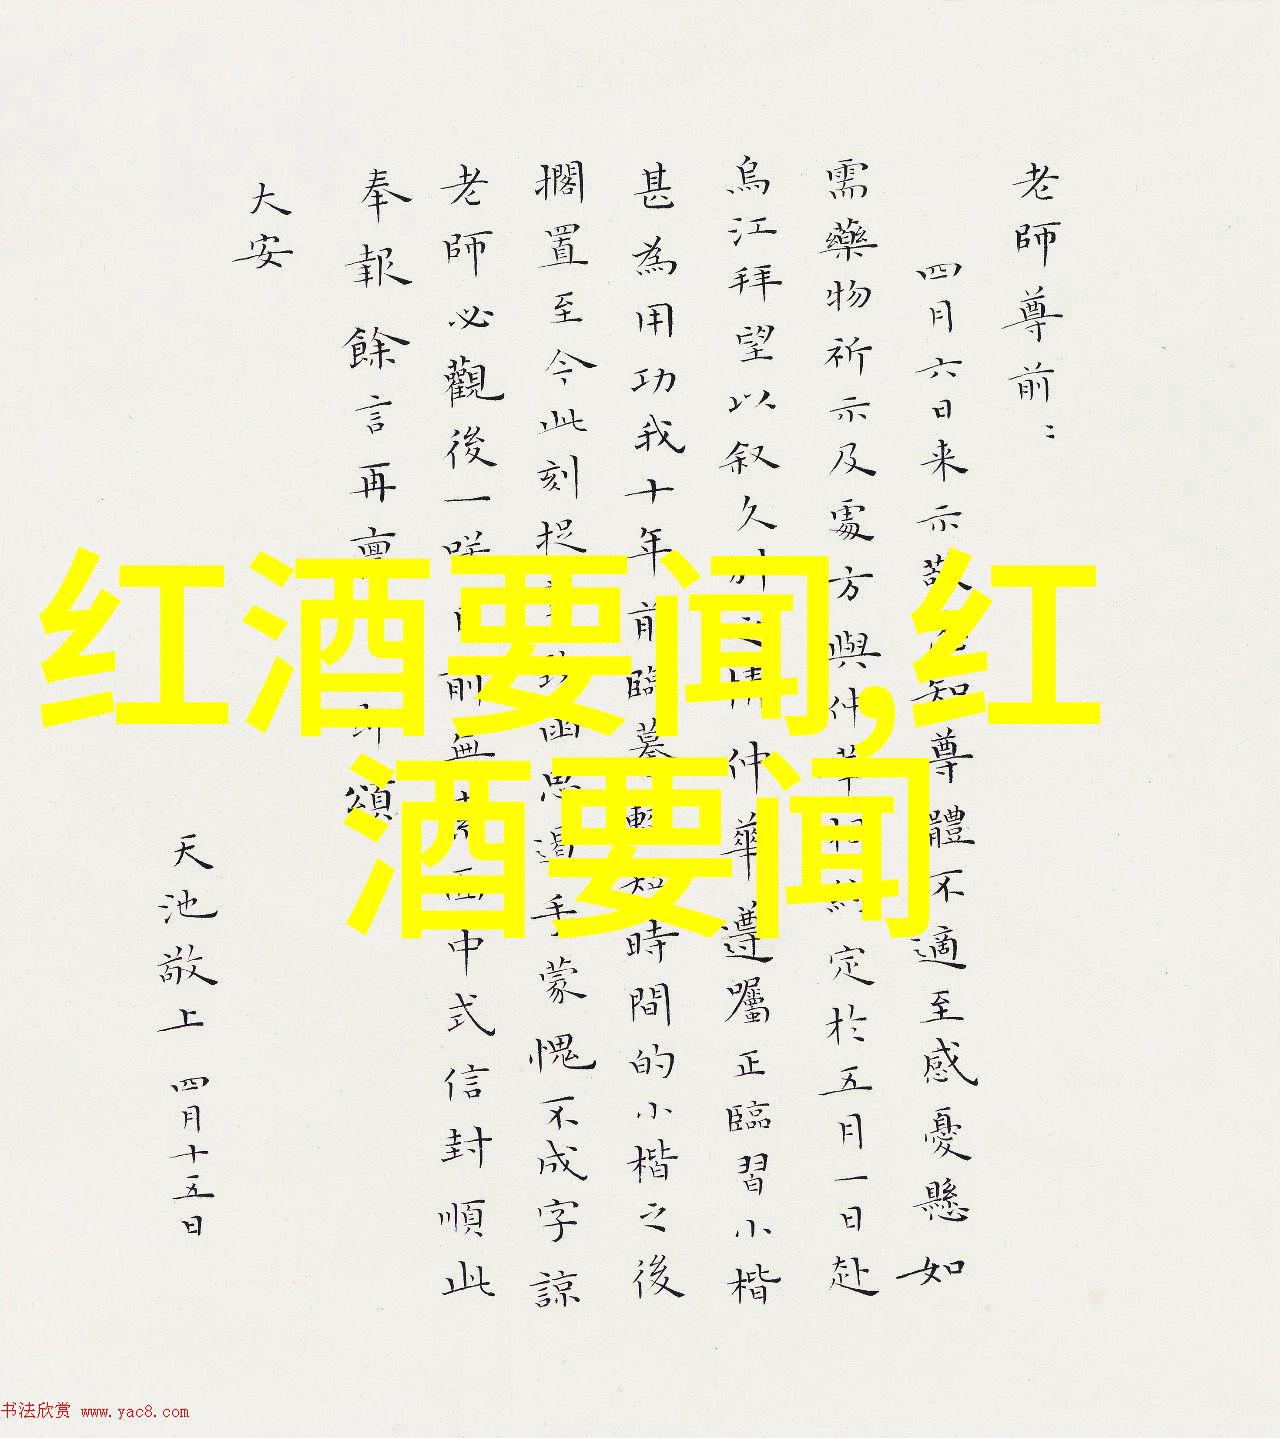 老師尊前：
四月六日来示敬知尊體不適至感憂懸如
需藥物祈示及處方與仲華約定於五月一日赴
烏江拜望以叙久別之情仲華遵囑正臨習小楷
甚為用功我十年前臨摹暫短時間的小楷之後
擱置至今此刻捉思遏手蒙愧不成字諒
老師必觀後一咲前無中式信封順此
奉報餘言再稟頌
大安
天池敬上 四月十五日
红酒要闻,红
酒要闻
书法欣赏 www.yac8.com